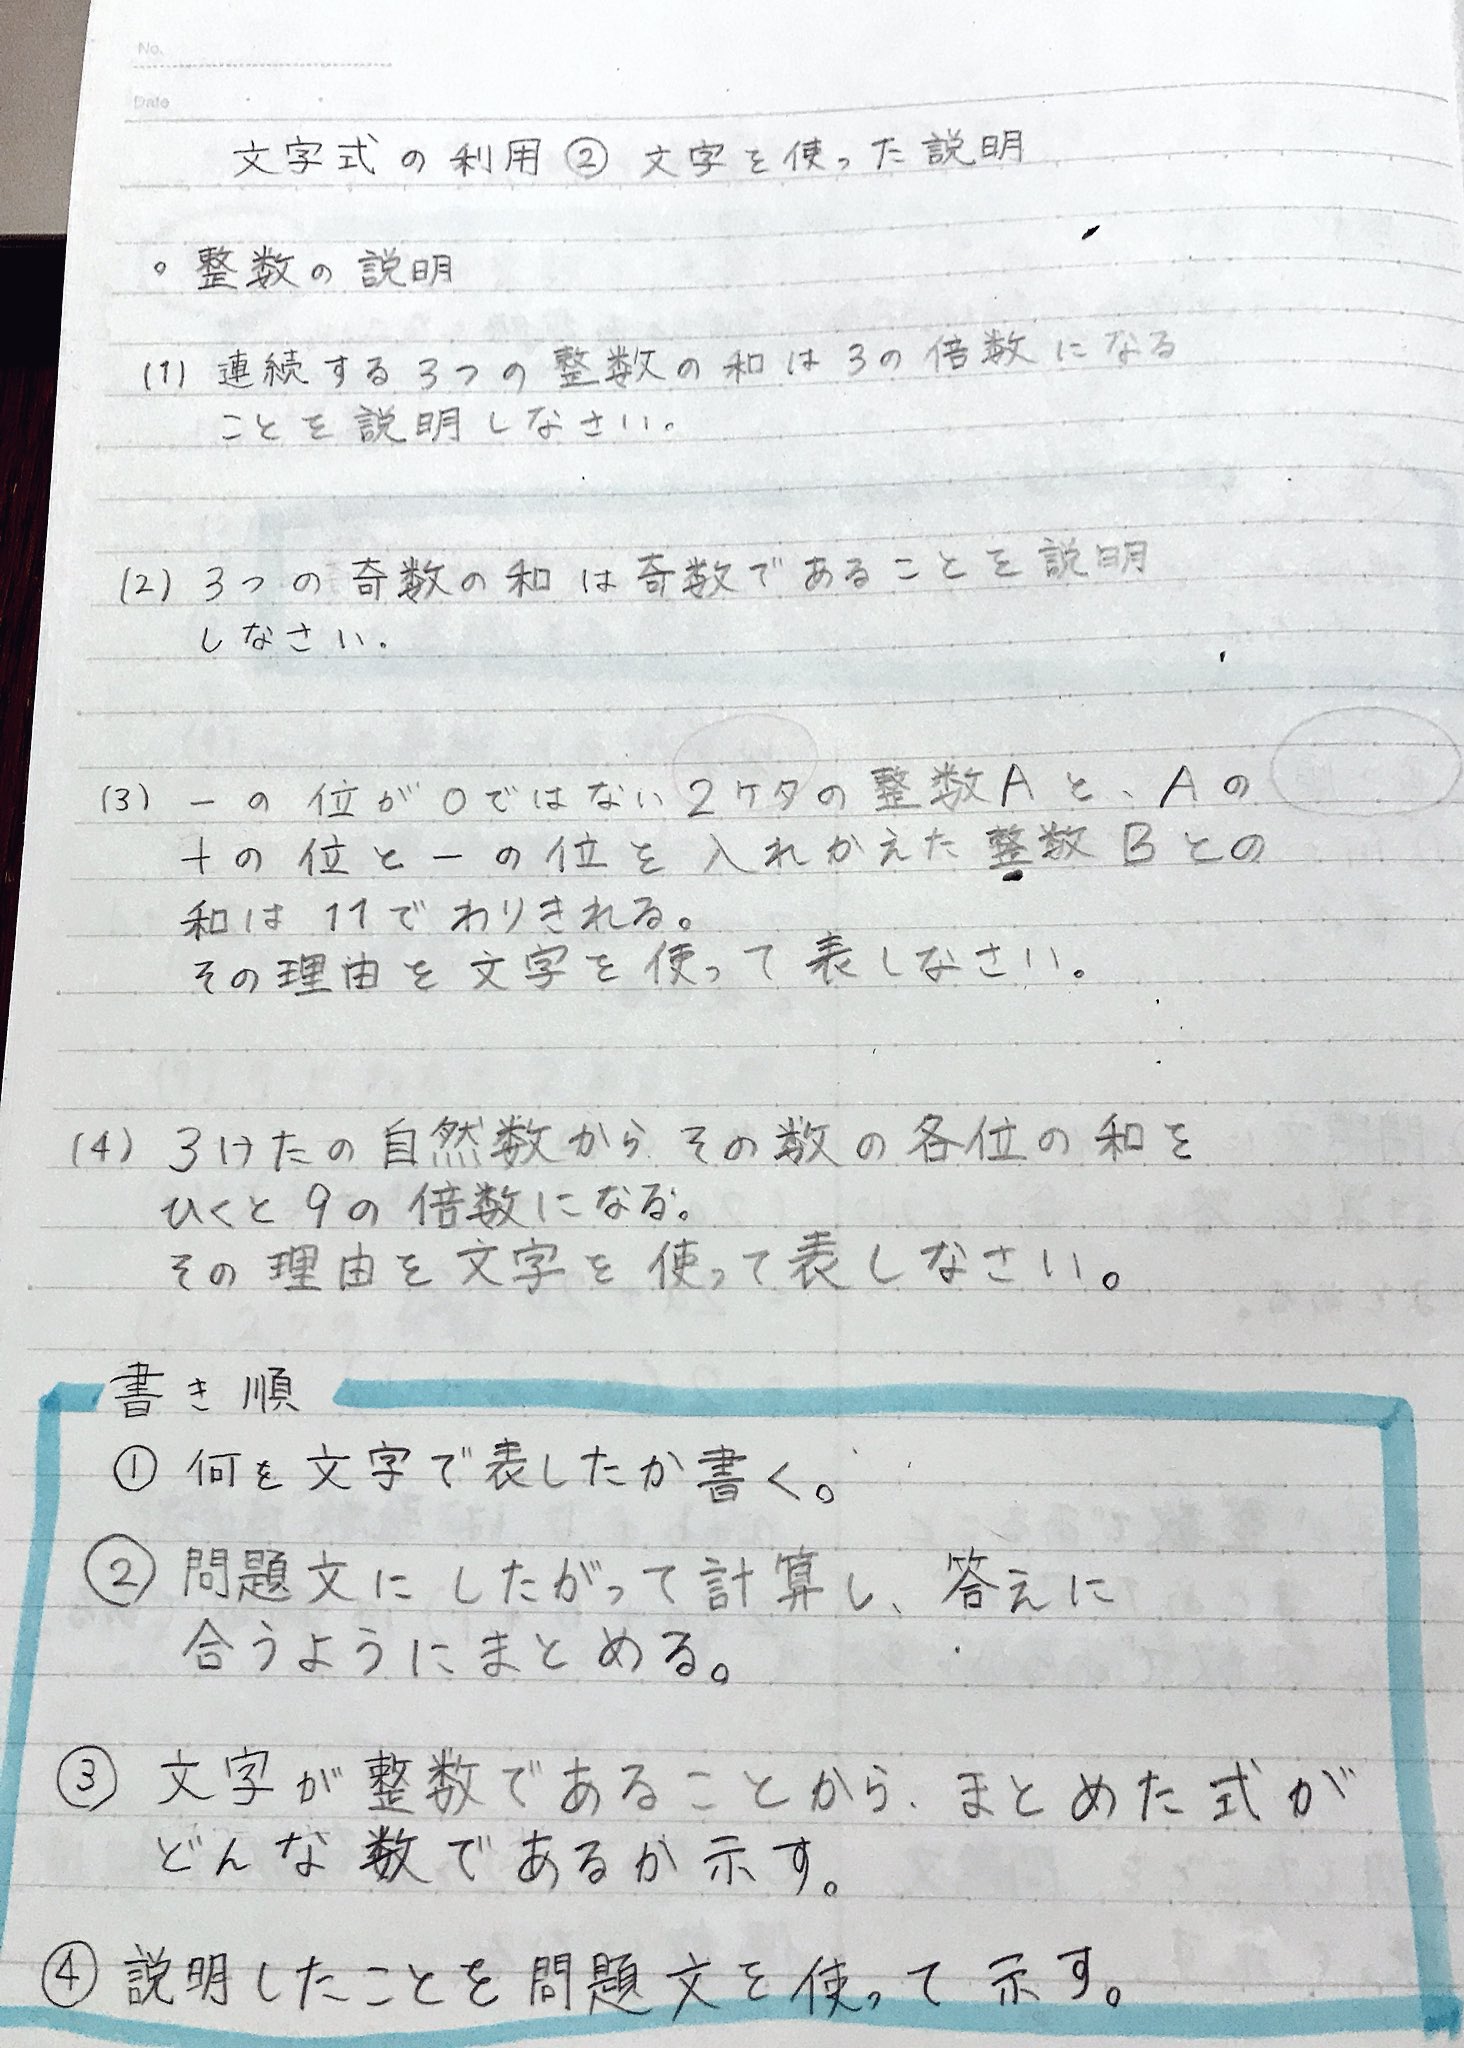 No.
Date
文字式の利用② 文字を使った説明
○ 整数の説明
(1) 連続する3つの整数の和は3の倍数になる
ことを説明しなさい。
(2) 3つの奇数の和は奇数であることを説明
しなさい。
(3) 一の位が0ではない2ケタの整数Aと、Aの
十の位と一の位を入れかえた整数Bとの
和は11でわりきれる。
その理由を文字を使って表しなさい。
(4) 3けたの自然数から、その数の各位の和を
ひくと9の倍数になる。
その理由を文字を使って表しなさい。
書き順
① 何を文字で表したか書く。
② 問題文にしたがって計算し、答えに
合うようにまとめる。
③ 文字が整数であることから、まとめた式が
どんな数であるか示す。
④ 説明したことを問題文を使って示す。